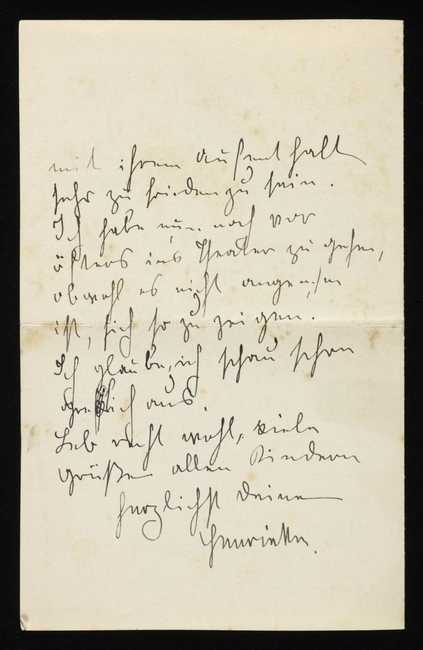 mit ihrem Aufenthalt
sehr zufrieden zu sein.
Ich habe nun noch vor
öfters ins Theater zu gehen,
obwohl es nicht angenehm
ist, sich so zu zeigen.
Ich glaube, ich schau schon
aus.
Leb recht wohl, viele
Grüße allen Kindern
herzlichst Deine
Henriette.